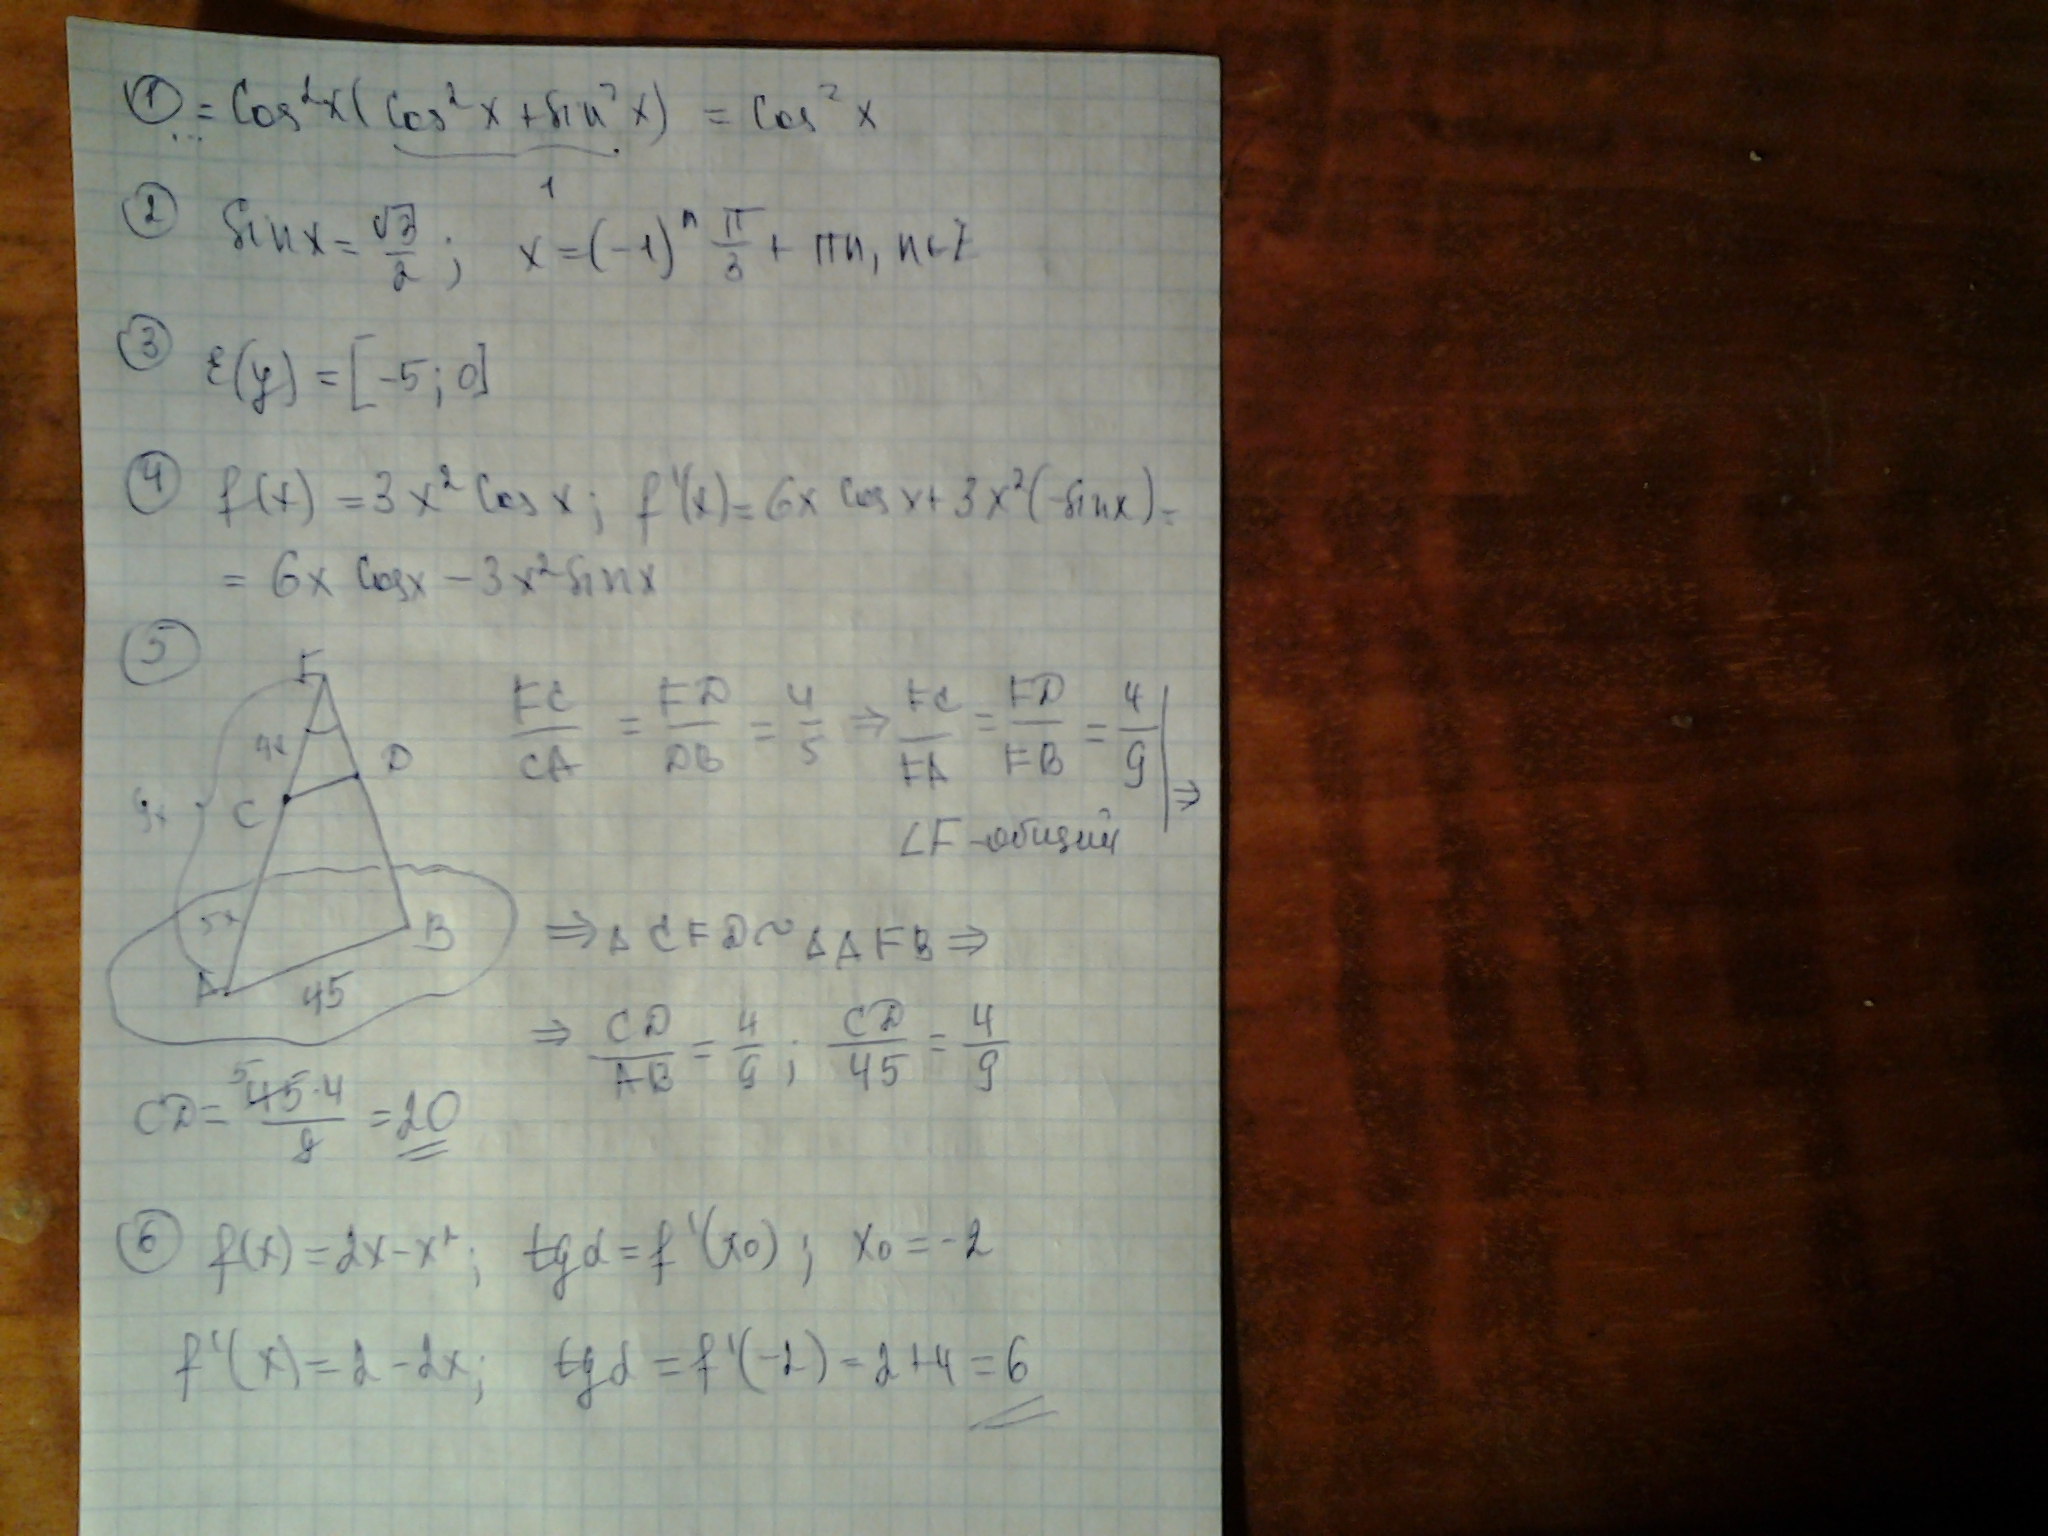 ① = cos²x(cos²x + sin²x) = cos²x
...
1
② sinx = √3/2; x = (-1)ⁿ π/3 + πn, n∈Z
③ E(y) = [-5; 0]
④ f(x) = 3x² cosx; f'(x) = 6x cosx + 3x²(-sinx) =
= 6x cosx - 3x² sinx
⑤
F
4x
D
C
9x
5x
B
A
45
FC/CA = FD/DB = 4/5 ⇒ FC/FA = FD/FB = 4/9 | ⇒
∠F - общий
⇒ Δ CFD ~ Δ AFB ⇒
⇒ CD/AB = 4/9; CD/45 = 4/9
CD = 45·4/9 = 20
5
⑥ f(x) = 2x - x²; tgα = f'(x₀); x₀ = -2
f'(x) = 2 - 2x; tgα = f'(-2) = 2+4 = 6